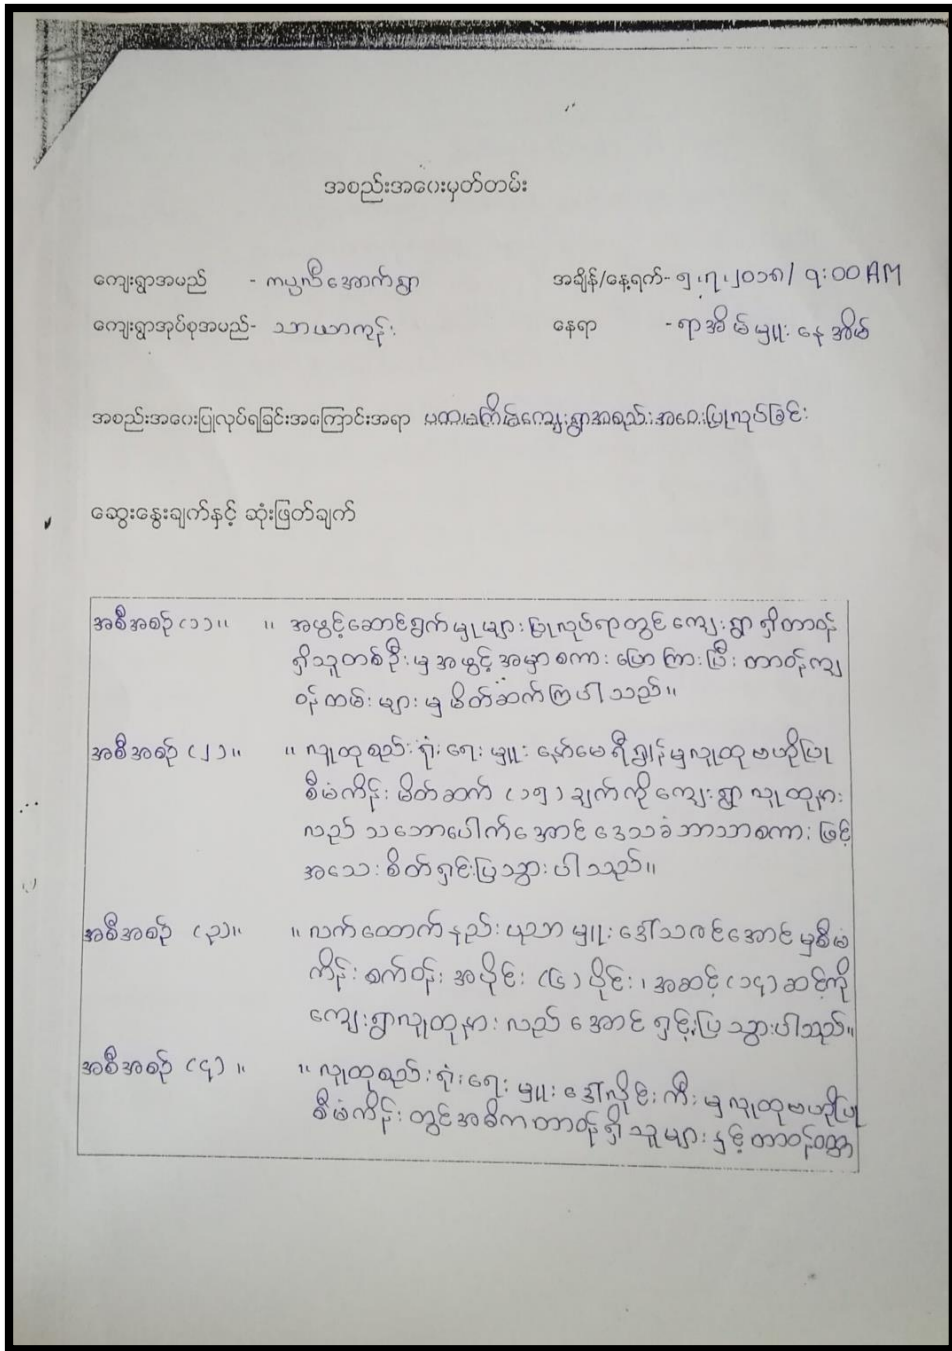 အစည်းအဝေးမှတ်တမ်း
ကျေးရွာအမည် - ကပ္ပလီအောက်ရွာ အချိန်/နေ့ရက်- ၅.၇.၂၀၁၈/ ၇:00 AM
ကျေးရွာအုပ်စုအမည်- သာယာကုန်း နေရာ - ရာအိမ်မှူးနေအိမ်
အစည်းအဝေးပြုလုပ်ရခြင်းအကြောင်းအရာ ပထမအကြိမ်ကျေးရွာအစည်းအဝေးပြုလုပ်ခြင်း
ဆွေးနွေးချက်နှင့် ဆုံးဖြတ်ချက်
အစီအစဉ် (၁)။ ။ အဖွင့်ဆောင်ရွက်မှုများပြုလုပ်ရာတွင် ကျေးရွာရှိတာဝန်
ရှိသူတစ်ဦးမှ အဖွင့်အမှာစကားပြောကြားပြီး တာဝန်ကျ
ဝန်ထမ်းများမှ မိတ်ဆက်ကြပါသည်။
အစီအစဉ် (၂)။ ။ လူထုစည်းရုံးရေးမှူး နော်မေရီရွှန်မှ လူထုဗဟိုပြု
စီမံကိန်း မိတ်ဆက် (၁၅) ချက်ကို ကျေးရွာလူထုနား
လည် သဘောပေါက်အောင် ဒေသခံဘာသာစကားဖြင့်
အသေးစိတ်ရှင်းပြသွားပါသည်။
အစီအစဉ် (၃)။ ။ လက်ထောက်နည်းပညာမှူး ဒေါ်သဇင်အောင်မှ စီမံ
ကိန်းစက်ဝန်း အပိုင်း (၆) ပိုင်း၊ အဆင့် (၁၄) ဆင့်ကို
ကျေးရွာလူထုနားလည်အောင် ရှင်းပြသွားပါသည်။
အစီအစဉ် (၄)။ ။ လူထုစည်းရုံးရေးမှူး ဒေါ်လှိုင်းကီးမှ လူထုဗဟိုပြု
စီမံကိန်းတွင် အဓိကတာဝန်ရှိသူများနှင့် တာဝန်ဝတ္တ